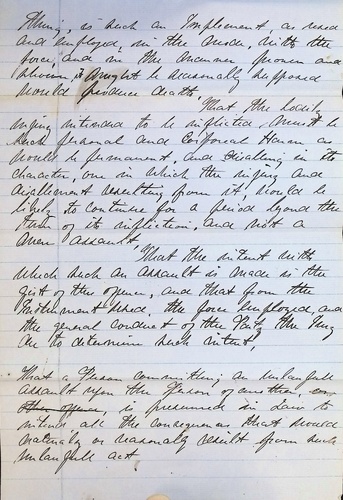 Thing, is such an Implement, as used
and employed, in the mode, with the
force, and in the manner proven and
shown, as might be reasonably supposed
would produce death.
That the bodily
injury intended to be inflicted, must be
such personal and Corporal Harm as
would be permanent, and disabling in its
character, one in which the injury and
disablement resulting from it, would be
likely to continue for a period beyond the
time of its infliction, and not a
mere assault,
That the intent with
which such an assault is made is the
gist of the offence, and that from the
Instrument used, the force employed, and
the general conduct of the Party the Jury
are to determine such intent,
That a Person committing an unlawfull
assault upon the Person of another,
other offence, is presumed in Law to
intend all the consequences that would
naturally or reasonably result from such
unlawfull act